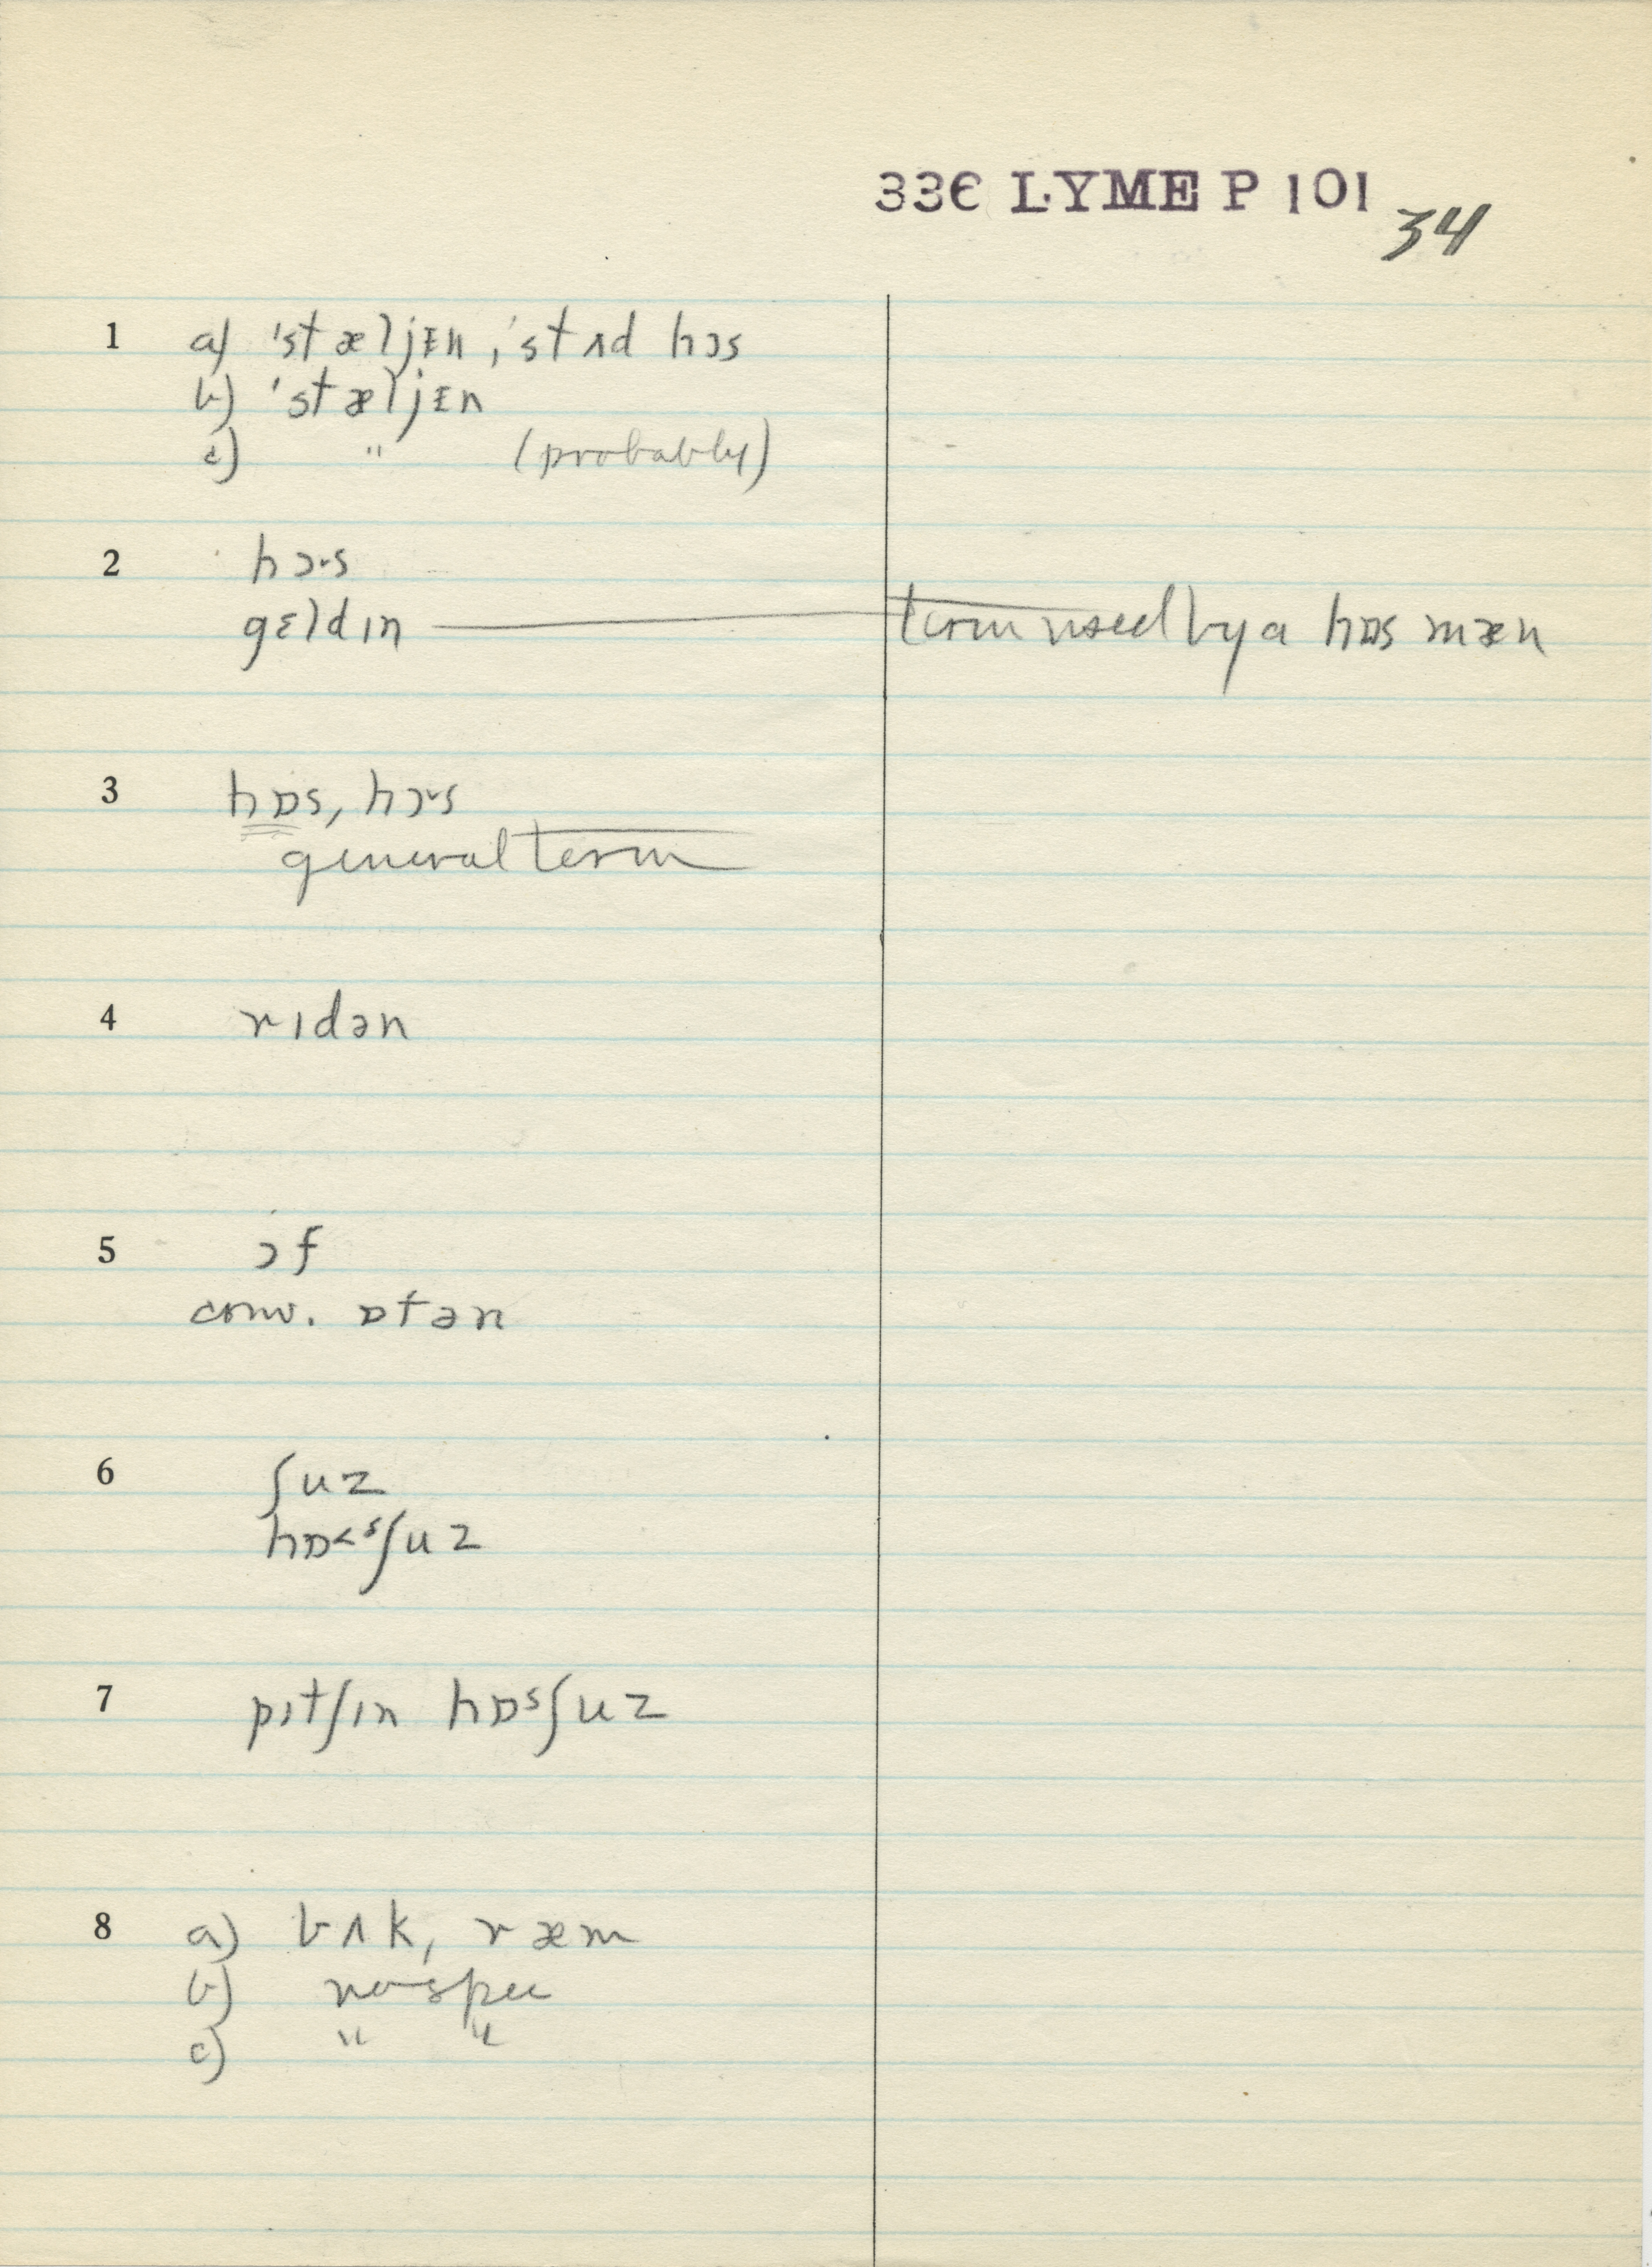 33ϵ LYME P 101
34
1 a) 'stæljᵻn, 'stʌd hɔs
b) 'stæljᵻn
c) " (probably)
2 hɔ˞s
gɛldɪn term used by a hɒs mæn
3 hɒs, hɔ˞s
general term
4 rɪdən
5 ɔf
conv. ɒtən
6 ʃuz
hɒ<ˢʃuz
7 pɪtʃɪn hɒˢʃuz
8 a) bʌk, ræm
b) no spec
c) " "